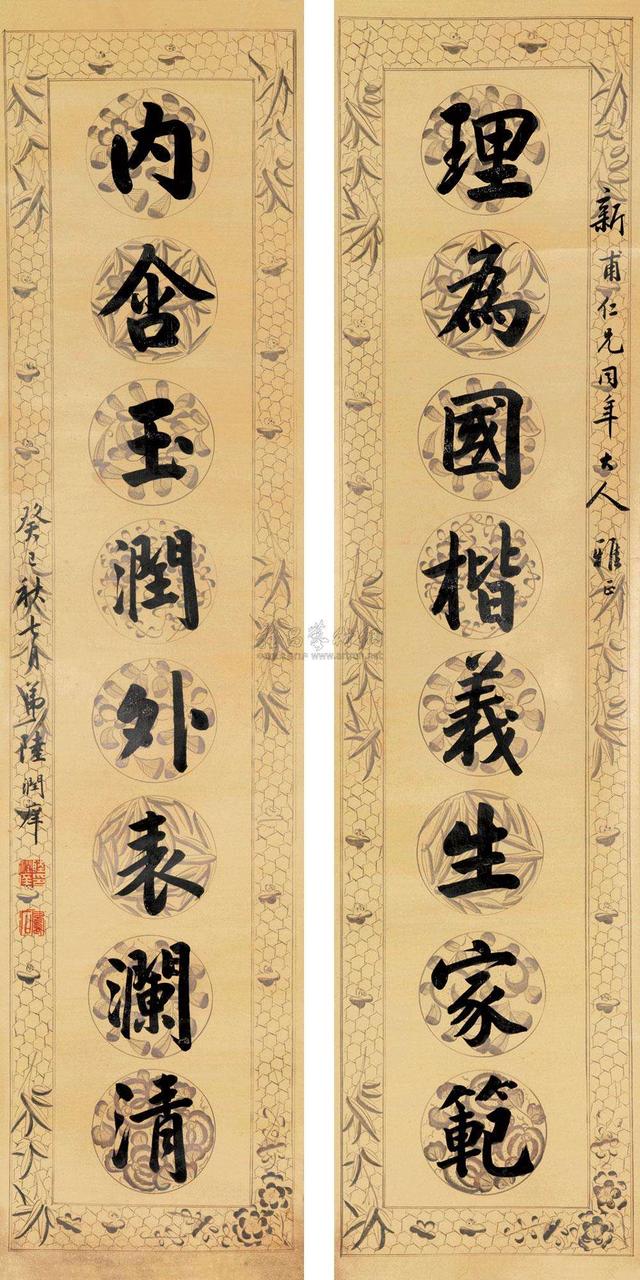 新甫仁兄同年大人 雅正
理為國楷義生家範
內含玉潤外表瀾清
癸巳秋七月弟陸潤庠